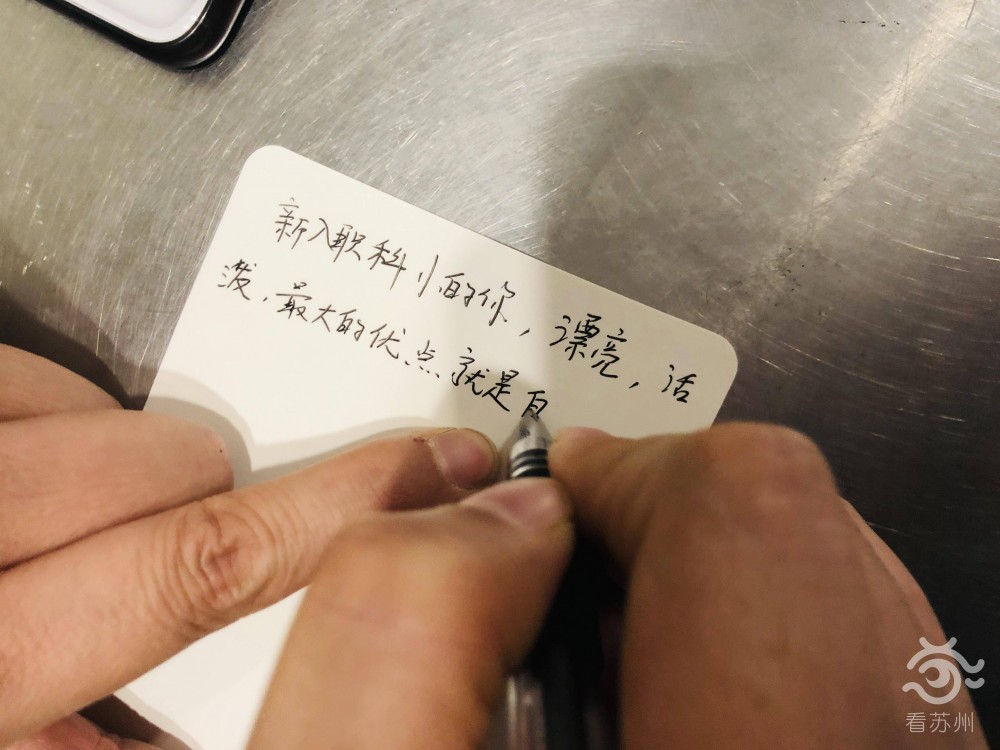 新入职科小的你，漂亮，活
泼，最大的优点就是
看苏州